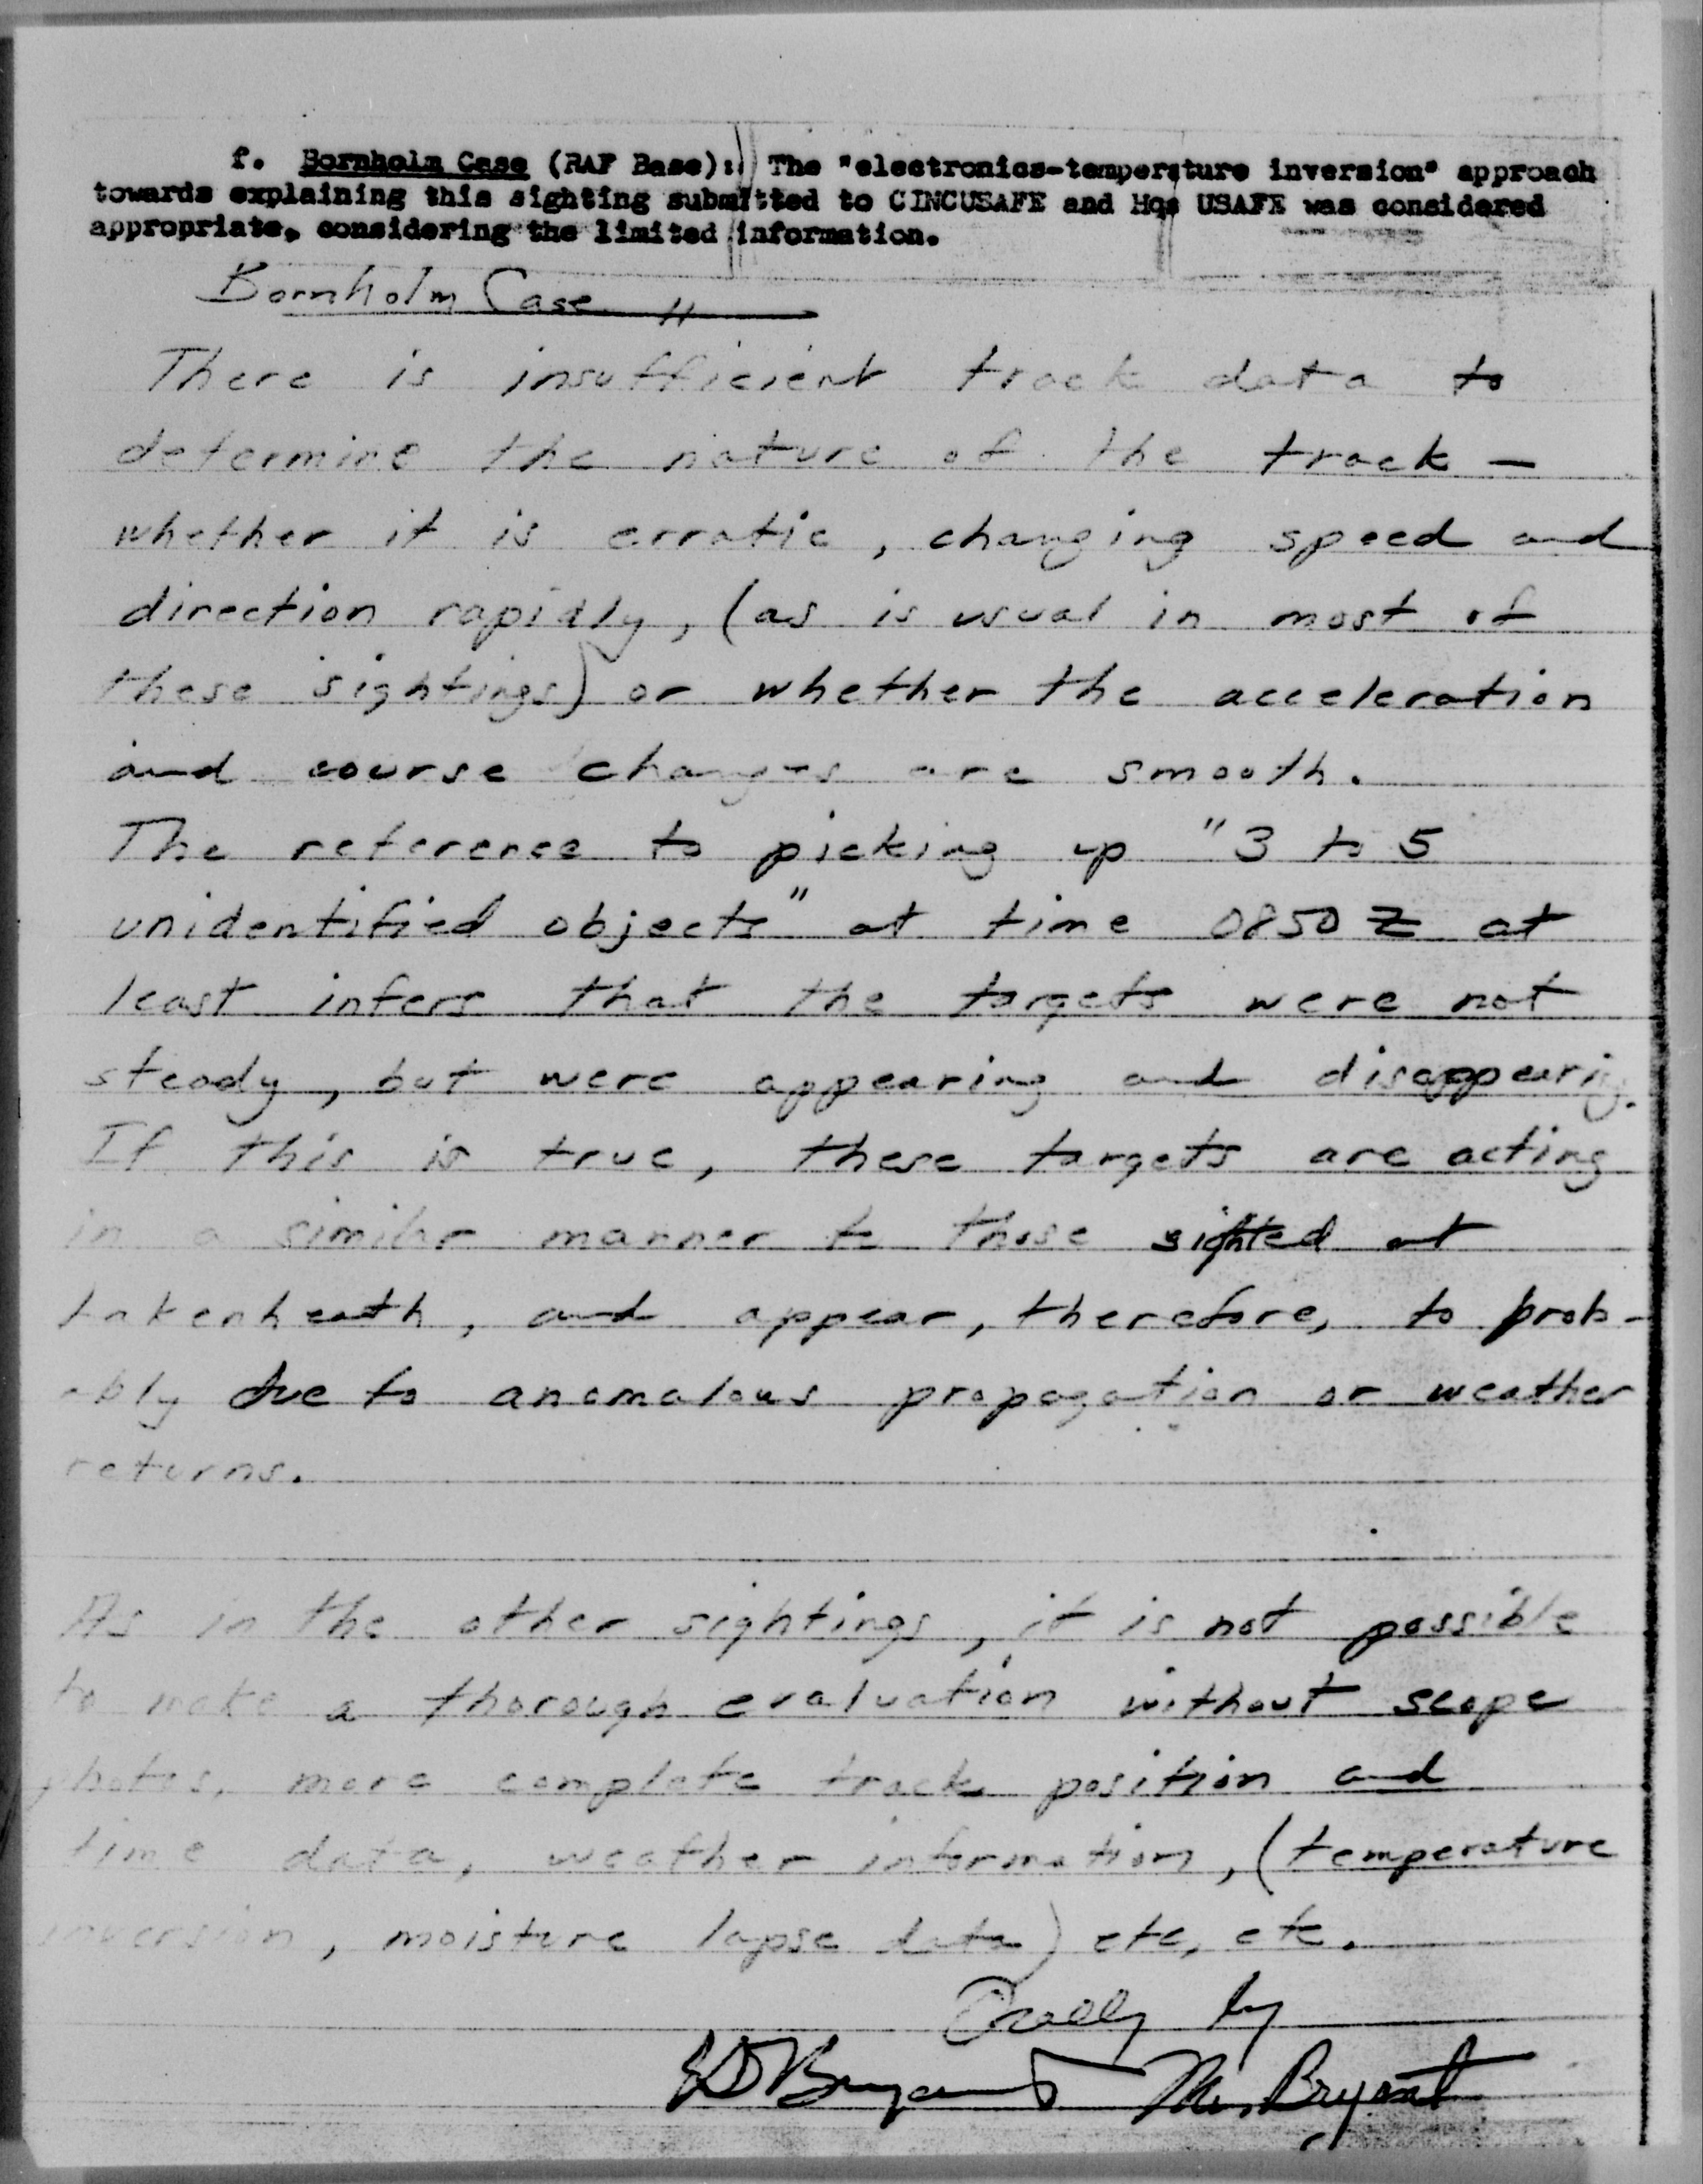 f. Bornholm Case (RAF Base): The "electronics-temperature inversion" approach
towards explaining this sighting submitted to CINCUSAFE and Hqs USAFE was considered
appropriate, considering the limited information.
Bornholm Case
There is insufficient track data to
determine the nature of the track —
whether it is erratic, changing speed and
direction rapidly, (as is usual in most of
these sightings) or whether the acceleration
and course changes are smooth.
The reference to picking up "3 to 5
unidentified objects" at time 0850 Z at
least infers that the targets were not
steady, but were appearing and disappearing.
If this is true, these targets are acting
in a similar manner to those sighted at
Lakenheath, and appear, therefore, to prob-
ably due to anomalous propagation or weather
returns.
As in the other sightings, it is not possible
to make a thorough evaluation without scope
photos, more complete track position and
time data, weather information, (temperature
inversion, moisture lapse data) etc, etc.
Orally by
Bryant Mr. Bryant